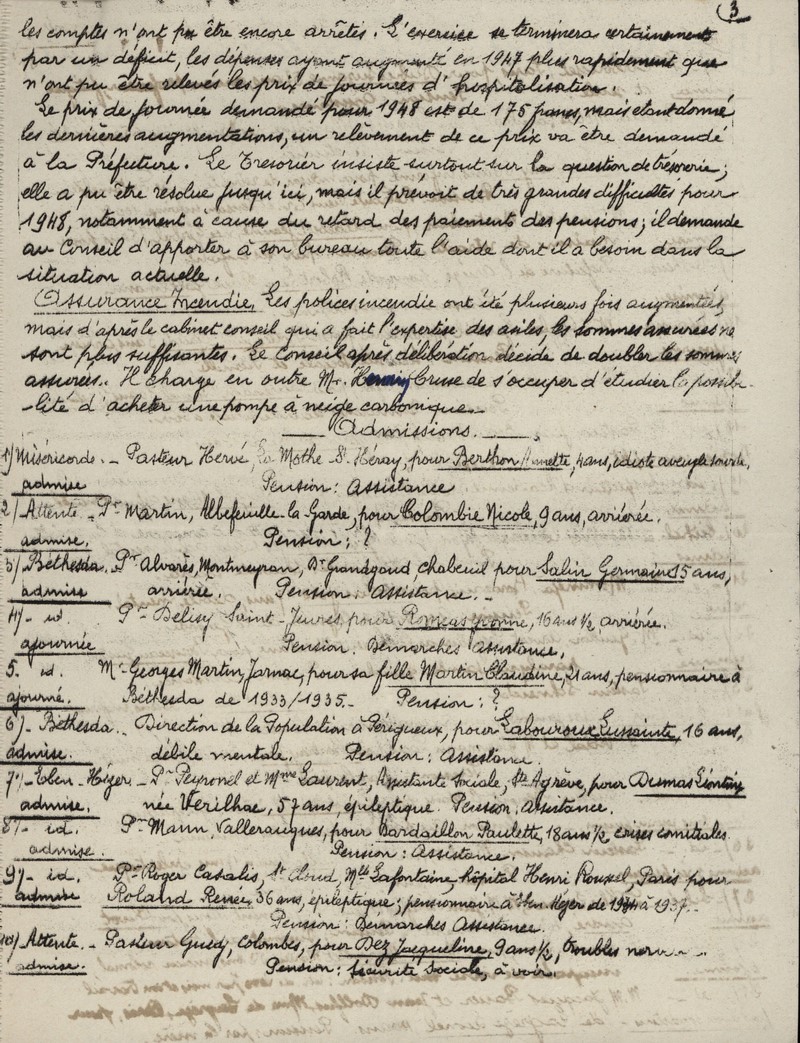 3
les comptes n'ont pu être encore arrêtés. L'exercice se terminera certainement
par un déficit, les dépenses ayant augmenté en 1947 plus rapidement que
n'ont pu être relevés les prix de journées d'hospitalisation.
Le prix de journée demandé pour 1948 est de 175 francs, mais etant donné
les dernières augmentations, un relèvement de ce prix va être demandé
à la Préfecture. Le Tresorier insiste surtout sur la question de trésorerie;
elle a pu être résolue jusqu'ici, mais il prévoit de très grandes difficultés pour
1948, notamment à cause du retard des paiements des pensions; il demande
au Conseil d'apporter à son bureau toute l'aide dont il a besoin dans la
situation actuelle.
Assurance Incendie. Les polices incendie ont été plusieurs fois augmentées,
mais d'après le cabinet conseil qui a fait l'expertise des asiles, les sommes assurées ne
sont plus suffisantes. Le Conseil après délibération décide de doubler les sommes
assurées. Il charge en outre Mr. Henry Cruse de s'occuper d'étudier la possibi-
-lité d'acheter une pompe à neige carbonique.
Admissions.
1/ Miséricorde. - Pasteur Hervé, La Mothe St Héray, pour Berthon Annette, 4 ans, idiote aveugle sourde.
admise Pension: Assistance
2/ Attente - Pr Martin, Albefeuille-la-Garde, pour Colombie Nicole, 9 ans, arriérée.
admise. Pension: ?
3/ Béthesda. Pr Alvarès, Montmeyran, Dr Grandgaud, Chabeuil pour Salin Germaine 15 ans,
admise arriérée. Pension: Assistance. -
4/- id. Pr Delisy Saint-Jeures, pour Romeas Yvonne, 16 ans ½, arriérée.
ajournée Pension: Démarches Assistance.
5. id. Mr Georges Martin, Jarnac, pour sa fille Martin Claudine, 21 ans, pensionnaire à
ajourné. Béthesda de 1933/1935. - Pension: ?
6/- Béthesda. - Direction de la Population à Périgueux, pour Labouroux Lussainte, 16 ans,
admise. débile mentale. Pension: Assistance.
7/- Eben-Hézer - Pr Peyronel et Mme Laurent, Assistante Sociale, St Agrève, pour Dumas Léontine
admise. née Verilhac, 57 ans, épileptique. Pension. Assistance.
8/- id. Pr Mann, Valleraugues, pour Bardaillon Paulette, 18 ans ½, crises comitiales.
admise. Pension: Assistance.
9/- id. Pr Roger Casalis, St Cloud, Mlle Lafontaine, hôpital Henri Roussel, Paris pour
admise Roland Renée, 36 ans, épileptique; pensionnaire à Eben Hézer de 1934 à 1937. -
Pension: Démarches Assistance.
10/ Attente. - Pasteur Guedj, Colombes, pour Dez Jacqueline, 9 ans ½, troubles nerv
admise. Pension: Sécurité Sociale, à voir.